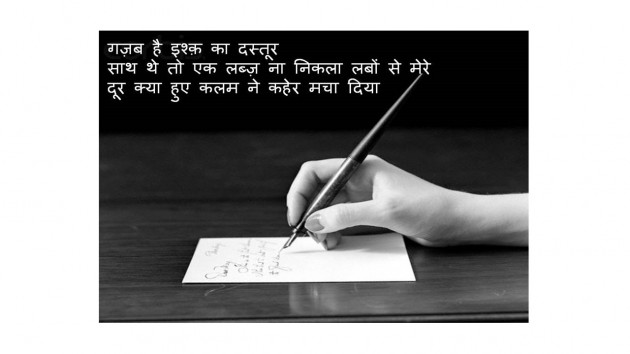 गज़ब है इश्क़ का दस्तूर
साथ थे तो एक लब्ज़ ना निकला लबों से मेरे
दूर क्या हुए कलम ने कहेर मचा दिया